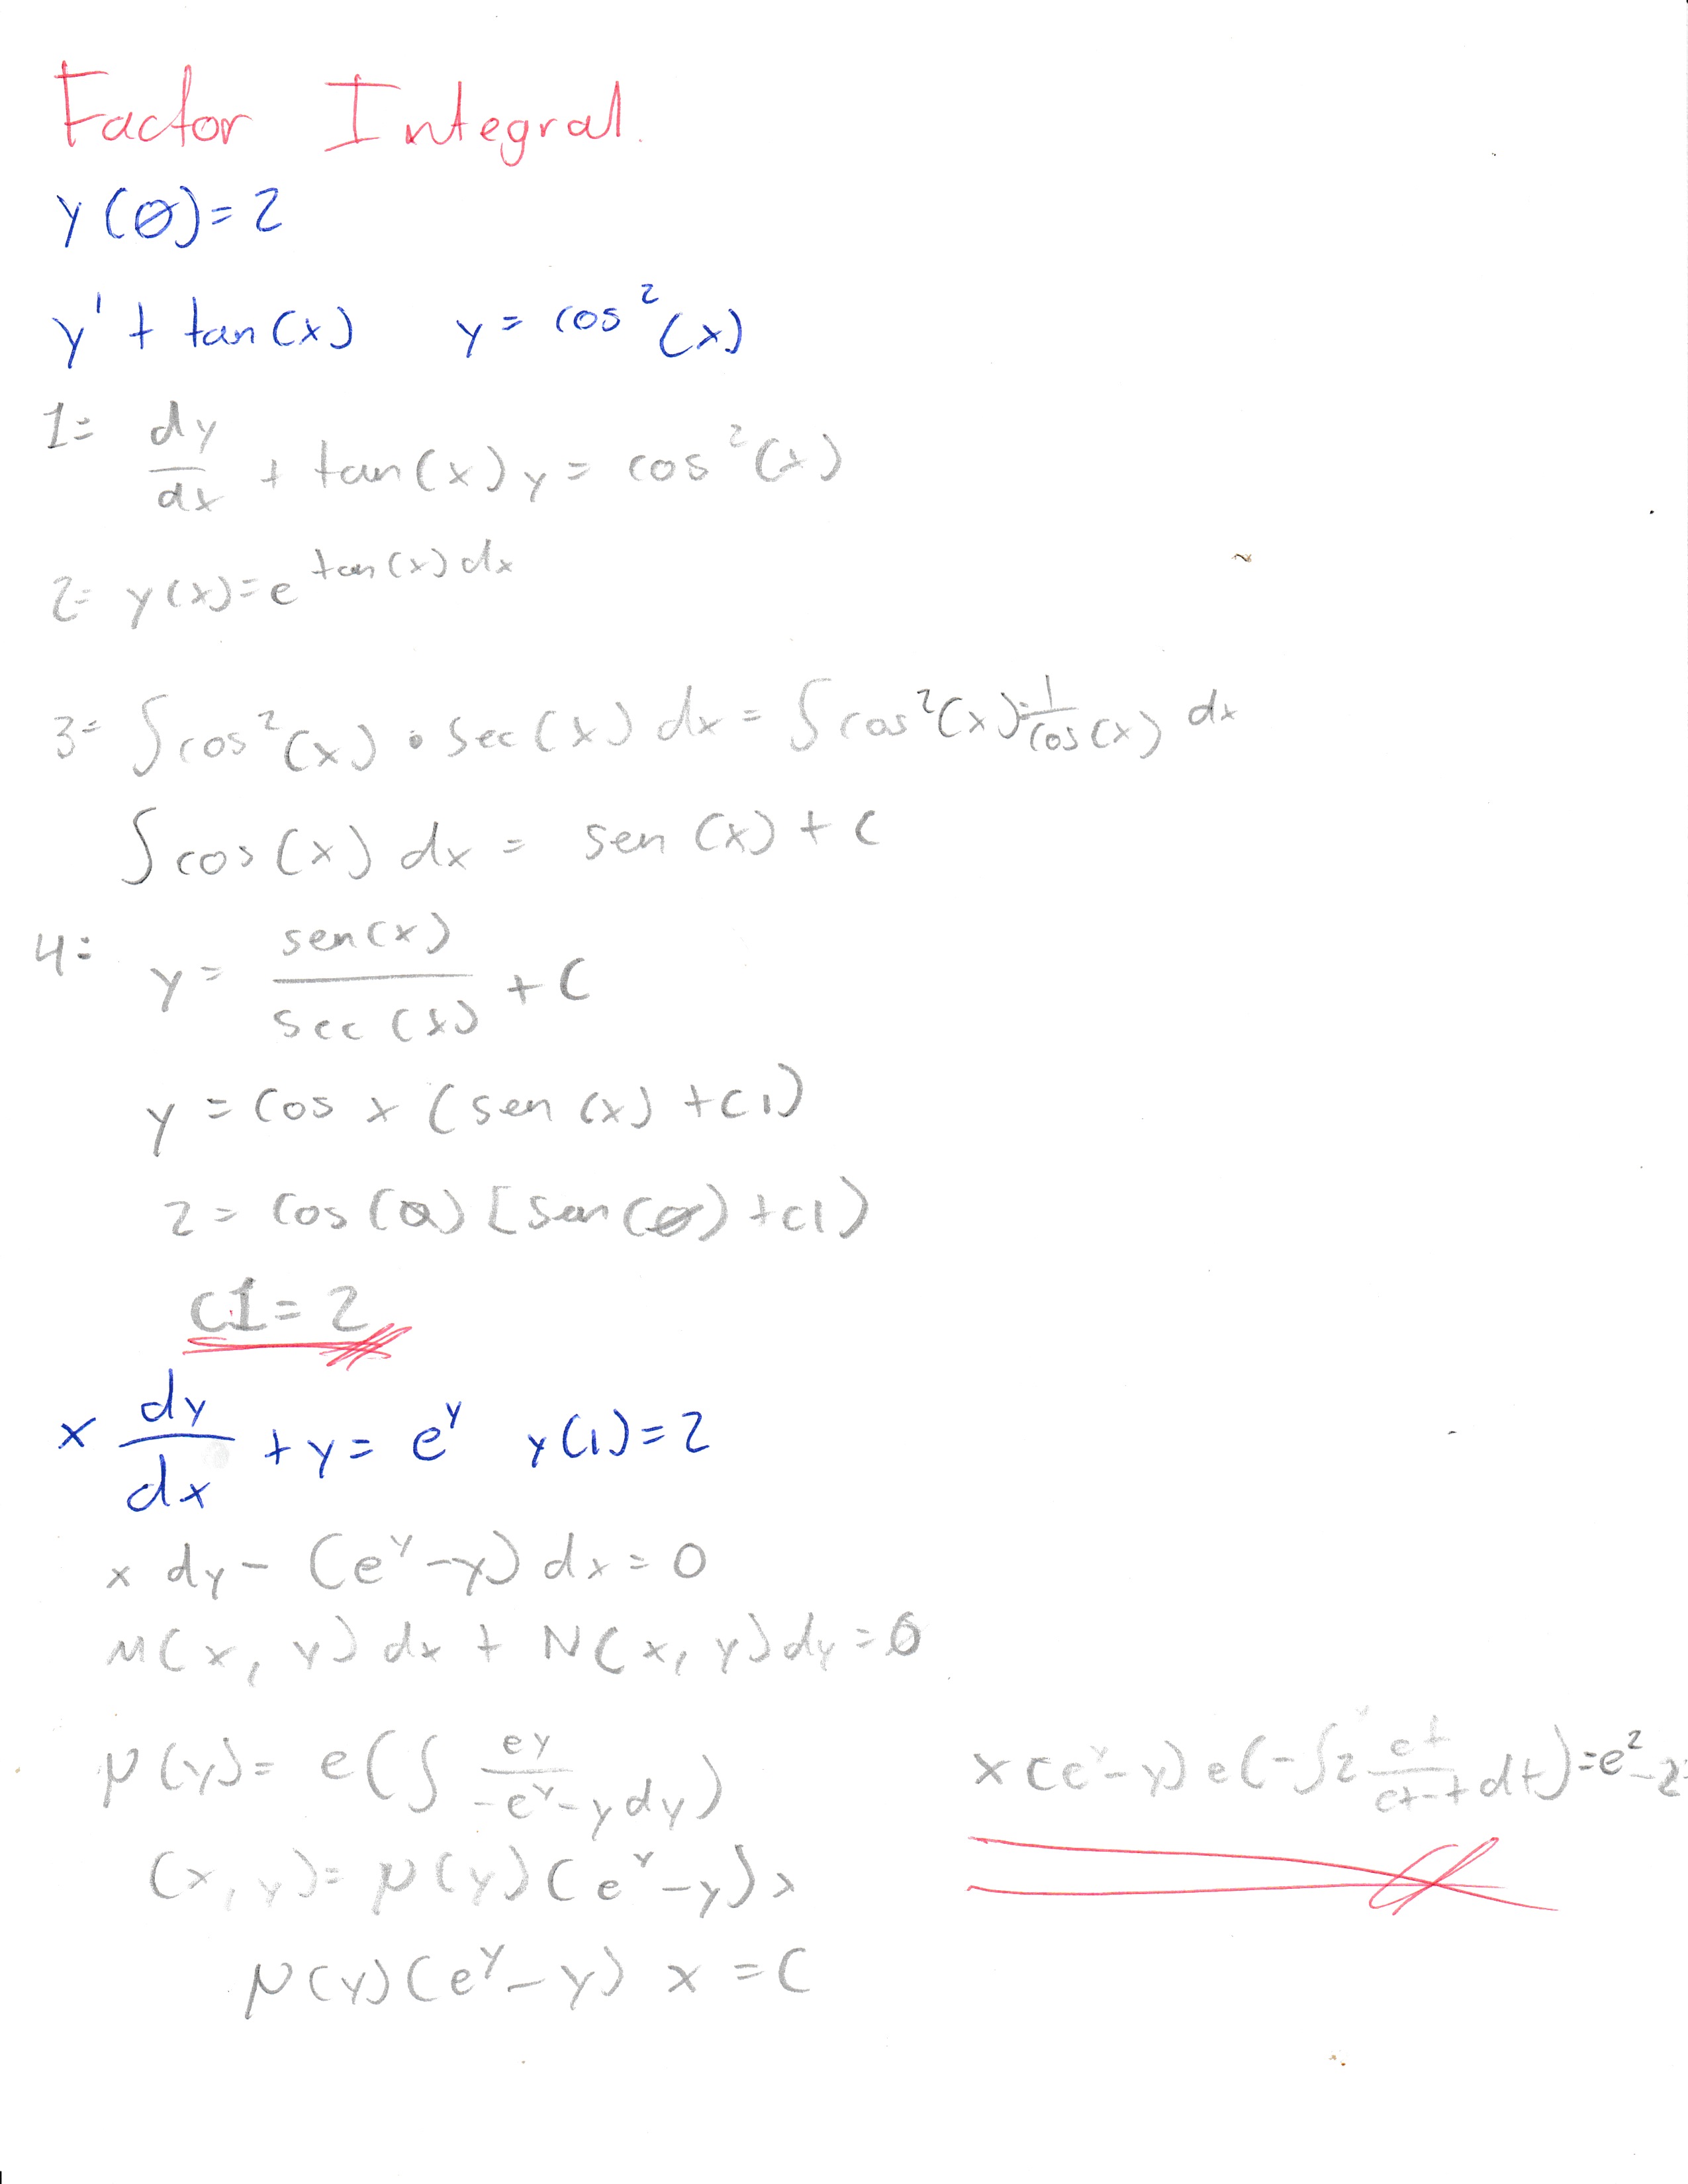 Factor Integral.
y(0)=2
y' + tan(x) y = cos²(x)
1= dy/dx + tan(x) y = cos²(x)
2= y(x)=e^tan(x)dx
3= ∫cos²(x) • sec(x) dx = ∫cos²(x)·1/cos(x) dx
∫cos(x) dx = sen(x) + C
4= y = sen(x)/sec(x) + C
y = cos x (sen(x) + C1)
2 = cos(0) [sen(0) + C1)
C1 = 2
x dy/dx + y = e^y y(1)=2
x dy - (e^y - y) dx = 0
M(x, y) dx + N(x, y) dy = 0
μ(y) = e(∫ ey/-e^y-y dy)
(x, y) = μ(y)(e^y - y)x
μ(y)(e^y - y) x = C
x(e^y - y) e(-∫2 et/et-t dt) = e² - 2